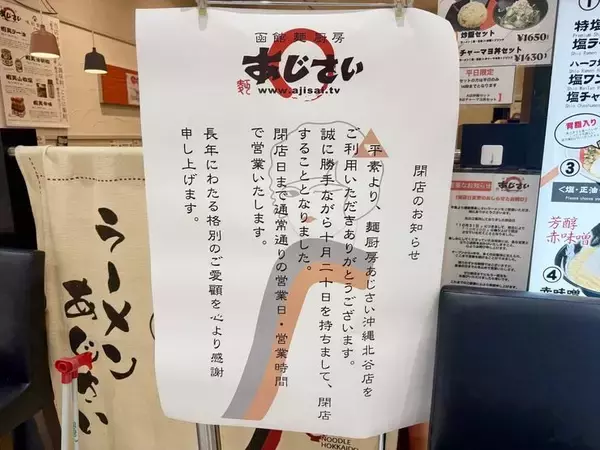 函館麺厨房
あじさい
www.ajisai.tv
閉店のお知らせ
平素より、麺厨房あじさい沖縄北谷店を
ご利用いただきありがとうございます。
誠に勝手ながら十月二十日を持ちまして、閉店
することとなりました。
閉店日まで通常通りの営業日・営業時間
で営業いたします。
長年にわたる格別のご愛顧を心より感謝
申し上げます。
ラーメン
あじさい
炒飯セット
¥1650
チャーマヨ丼セット
¥1430
平日限定
あじさい
①
特塩
塩ラ
ハーフ
塩ワン
塩チャ
背脂入り
③
<塩・正油
芳醇
赤味噌
④
赤味噌
NOODLE
HOKKAID